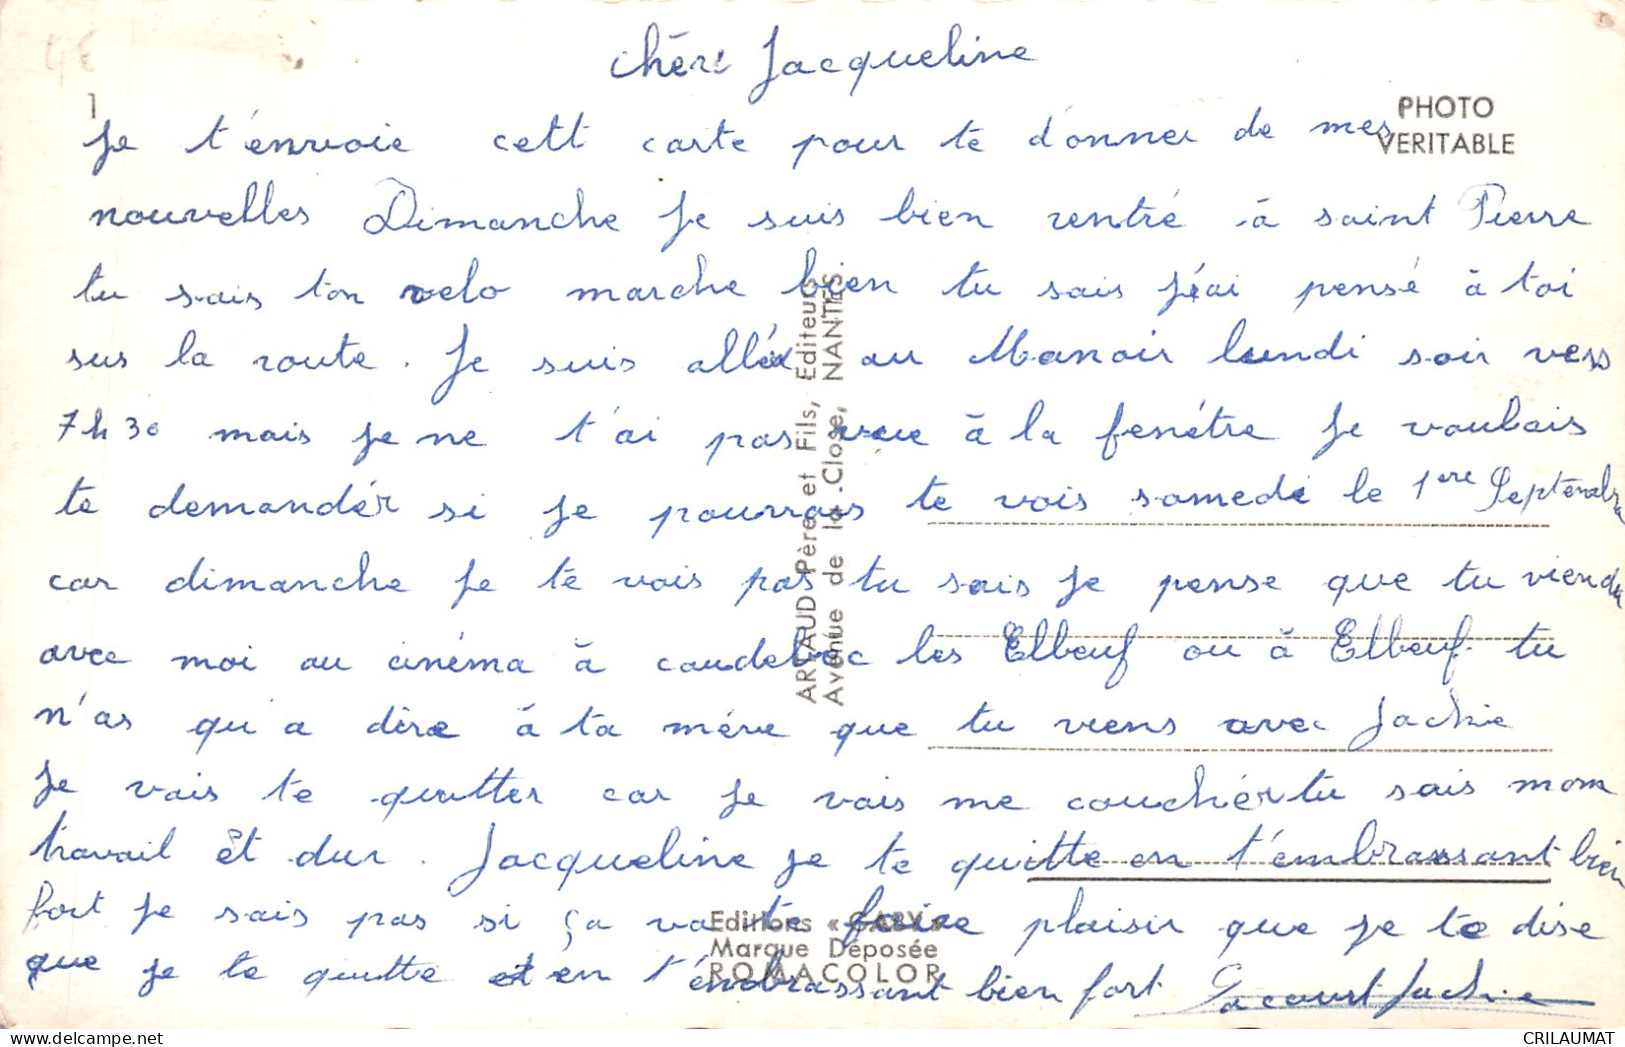 4€
1
chère Jacqueline
PHOTO
VERITABLE
Je t'envoie cett carte pour te donner de mes
nouvelles Dimanche Je suis bien rentré à saint Pierre
tu sais ton velo marche bien tu sais J'ai pensé à toi
sus la route. Je suis allé au Manoir lundi soir vers
7h30 mais Je ne t'ai pas vue à la fenétre Je voulais
te demandér si Je pourrais te vois samedi le 1ere Septembre
car dimanche Je te vois pas tu sais Je pense que tu viendra
avec moi au cinéma à caudebec les Elbeuf ou à Elbeuf tu
n'as qu'a dire à ta mére que tu viens avec Jackie
Je vais te quitter car Je vais me couchér tu sais mom
travail ét dur. Jacqueline Je te quitte en t'embrassant bien
fort Je sais pas si ça va te faire plaisir que Je te dise
que Je te quitte et en t'émbrassant bien fort Jackie
ARTAUD Père et Fils, Editeurs
Avenue de la Close, NANTES.
Editions « GABY »
Marque Déposée
ROMACOLOR
CRILAUMAT